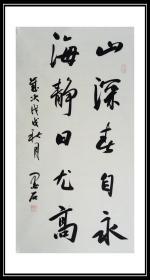 山深春自永
海静日尤高
岁次戊戌秋月
墨石